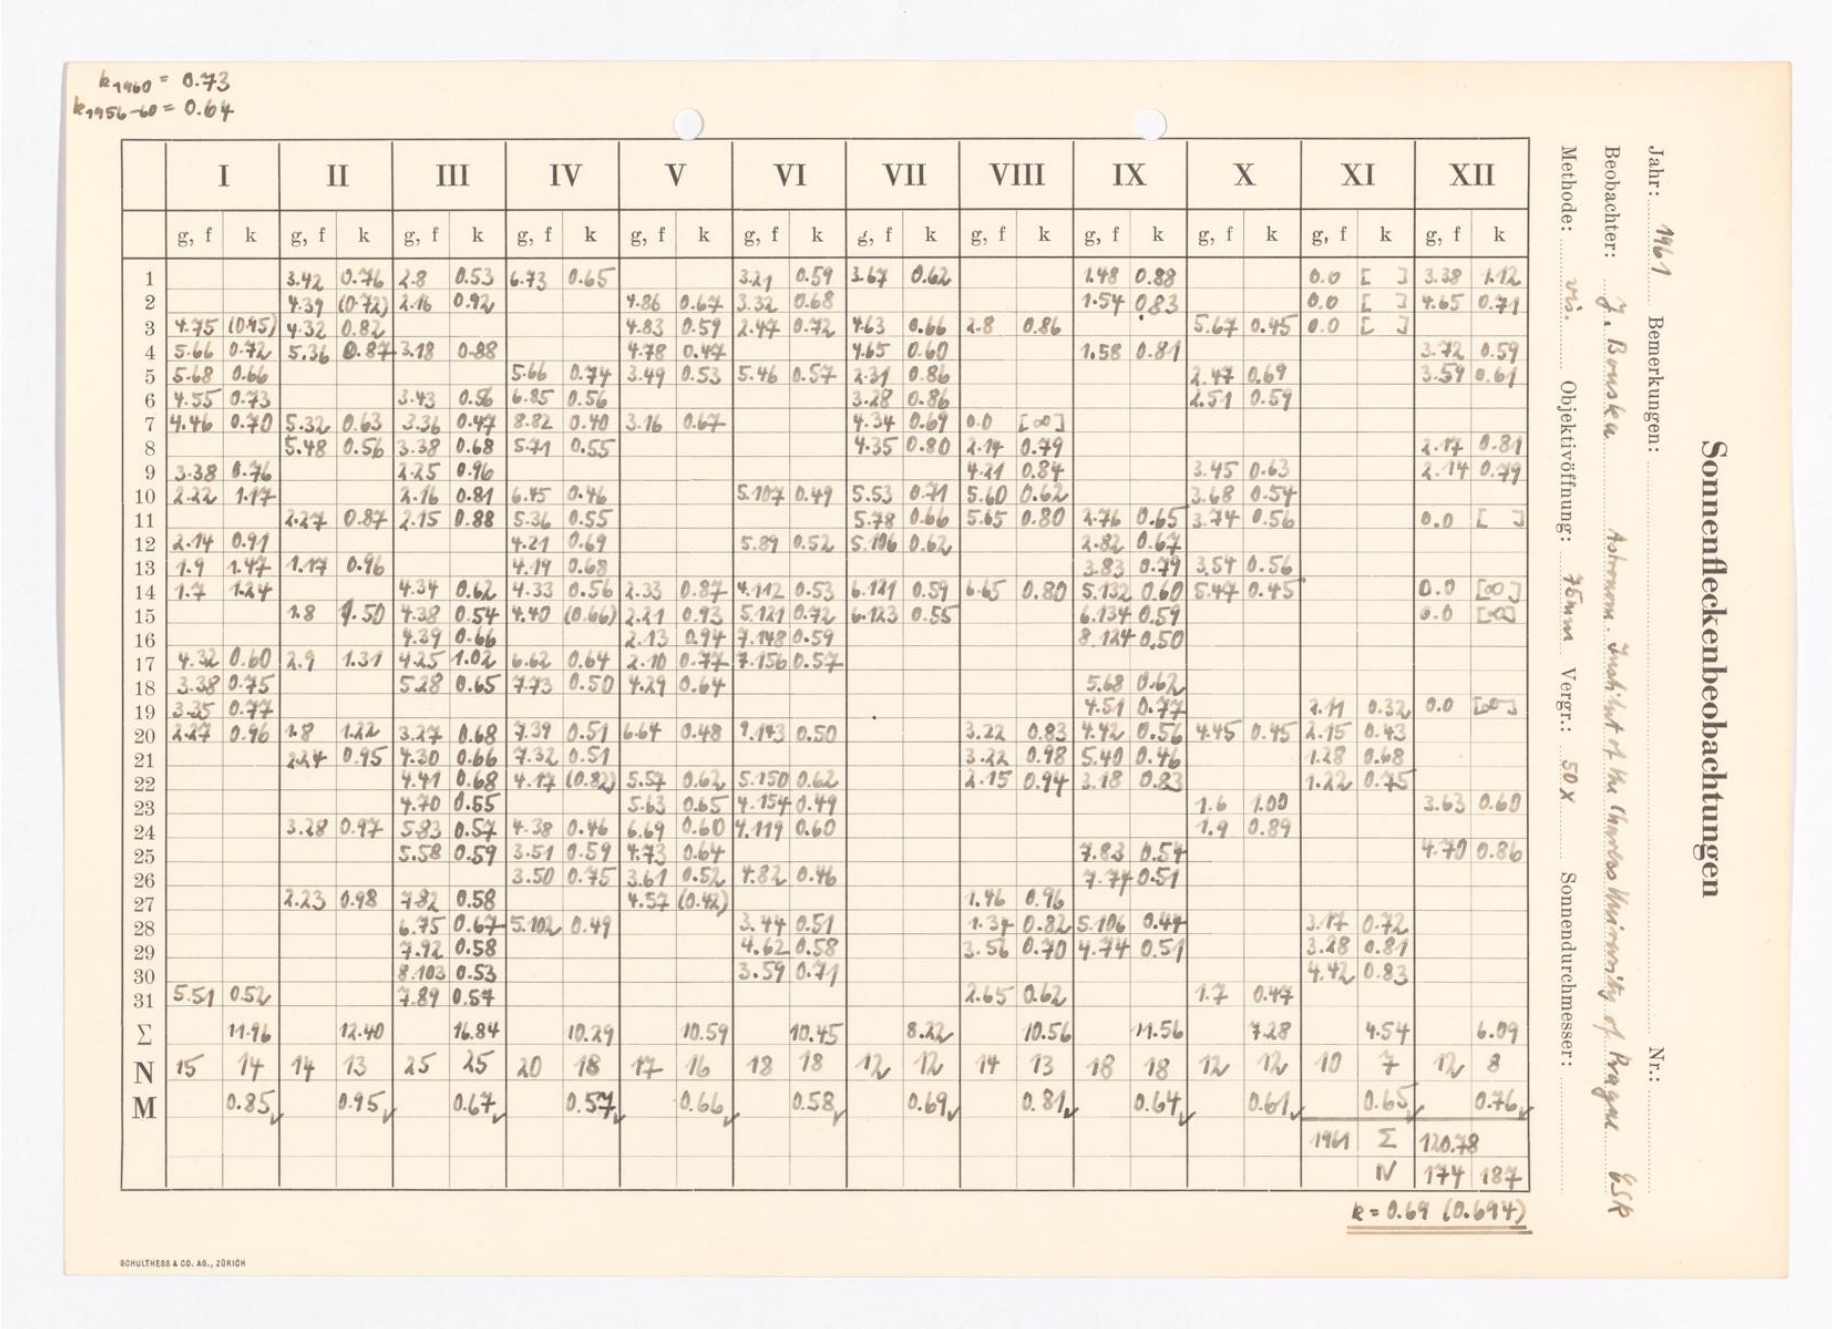 k1960 = 0.73
k1956-60 = 0.64
Sonnenfleckenbeobachtungen
Jahr: 1961 Bemerkungen: Nr.:
Beobachter: J. Bouska Astronom. Institut of the Charles University of Prague ČSR
Methode: vis. Objektivöffnung: 75mm Vergr.: 50x Sonnendurchmesser:
I II III IV V VI VII VIII IX X XI XII
g, f k g, f k g, f k g, f k g, f k g, f k g, f k g, f k g, f k g, f k g, f k g, f k
1 3.42 0.76 2.8 0.53 6.73 0.65 3.21 0.59 3.67 0.62 1.48 0.88 0.0 [ ] 3.38 1.12
2 4.39 (0.72) 2.16 0.92 4.86 0.67 3.32 0.68 1.54 0.83 0.0 [ ] 4.65 0.71
3 4.75 (0.45) 4.32 0.82 4.83 0.59 2.47 0.72 4.63 0.66 2.8 0.86 5.67 0.45 0.0 [ ]
4 5.66 0.72 5.36 0.87 3.18 0.88 4.78 0.47 4.65 0.60 1.58 0.81 3.72 0.59
5 5.68 0.66 5.66 0.74 3.49 0.53 5.46 0.57 2.31 0.86 2.47 0.69 3.59 0.61
6 4.55 0.73 3.43 0.56 6.85 0.56 3.28 0.86 2.51 0.59
7 4.46 0.70 5.32 0.63 3.36 0.47 8.82 0.40 3.16 0.67 4.34 0.69 0.0 [∞]
8 5.48 0.56 3.38 0.68 5.71 0.55 4.35 0.80 2.14 0.79 2.17 0.81
9 3.38 0.76 2.25 0.96 4.21 0.84 3.45 0.63 2.14 0.79
10 2.22 1.17 2.16 0.81 6.45 0.46 5.107 0.49 5.53 0.71 5.60 0.62 3.68 0.54
11 2.27 0.87 2.15 0.88 5.36 0.55 5.78 0.66 5.65 0.80 2.76 0.65 3.74 0.56 0.0 [ ]
12 2.14 0.91 4.21 0.69 5.89 0.52 5.106 0.62 2.82 0.67
13 1.9 1.47 1.17 0.96 4.19 0.68 3.83 0.79 3.54 0.56
14 1.7 1.24 4.34 0.62 4.33 0.56 2.33 0.87 4.112 0.53 6.121 0.59 6.65 0.80 5.132 0.60 5.47 0.45 0.0 [∞]
15 1.8 1.50 4.38 0.54 4.40 (0.66) 2.21 0.93 5.121 0.72 6.123 0.55 6.134 0.59 0.0 [∞]
16 4.39 0.66 2.13 0.94 7.148 0.59 8.124 0.50
17 4.32 0.60 2.9 1.31 4.25 1.02 6.62 0.64 2.10 0.77 7.156 0.57
18 3.38 0.75 5.28 0.65 7.73 0.50 4.29 0.64 5.68 0.62
19 3.35 0.77 4.51 0.77 2.11 0.32 0.0 [∞]
20 2.27 0.96 1.8 1.22 3.27 0.68 7.39 0.51 6.64 0.48 9.143 0.50 3.22 0.83 4.42 0.56 4.45 0.45 2.15 0.43
21 2.24 0.95 4.30 0.66 7.32 0.51 3.22 0.98 5.40 0.46 1.28 0.68
22 4.41 0.68 4.17 (0.82) 5.57 0.62 5.150 0.62 2.15 0.94 3.18 0.83 1.22 0.75
23 4.70 0.55 5.63 0.65 4.154 0.49 1.6 1.00 3.63 0.60
24 3.28 0.97 5.83 0.57 4.38 0.46 6.69 0.60 4.119 0.60 1.9 0.89
25 5.58 0.59 3.51 0.59 4.73 0.64 7.83 0.54 4.70 0.86
26 3.50 0.75 3.61 0.52 4.82 0.46 7.74 0.51
27 2.23 0.98 7.82 0.58 4.57 (0.42) 1.46 0.96
28 6.75 0.67 5.102 0.49 3.44 0.51 1.37 0.82 5.106 0.44 3.17 0.72
29 7.92 0.58 4.62 0.58 3.56 0.70 4.74 0.51 3.28 0.81
30 8.103 0.53 3.59 0.71 4.42 0.83
31 5.51 0.52 7.89 0.57 2.65 0.62 1.7 0.47
Σ 11.96 12.40 16.84 10.29 10.59 10.45 8.22 10.56 11.56 7.28 4.54 6.09
N 15 14 14 13 25 25 20 18 17 16 18 18 12 12 14 13 18 18 12 12 10 7 12 8
M 0.85 0.95 0.67 0.57 0.66 0.58 0.69 0.81 0.64 0.61 0.65 0.76
1961 Σ 120.78
N 174 187
k = 0.69 (0.694)
SCHULTHESS & CO. AG., ZÜRICH